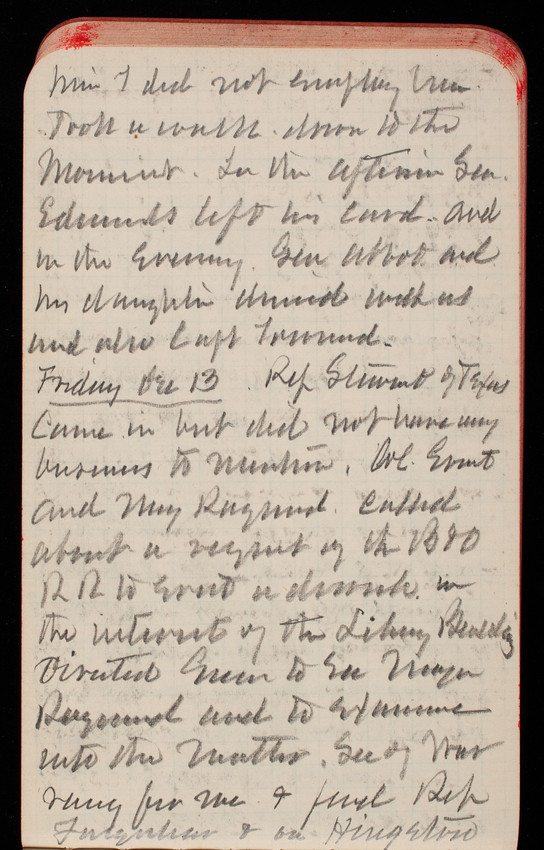 him I did not employ him
Took a walk down to the
Monument. In the afternoon Gen.
Edmunds left his Card. and
in the Evening Gen Abbot and
his daughter dined with us
and also Capt Townsend.
Friday Dec 13. Rep Stewart of Texas
Came in but did not have any
business to mention. Col. Ernst
and Maj Raymond. called
about a request of the B&O
RR to Grant a in
the interest of the Library Building
Directed Green to See Major
Raymond and to Examine
into the Matter. Sec of War
rang for me & find Rep
& on Hingston